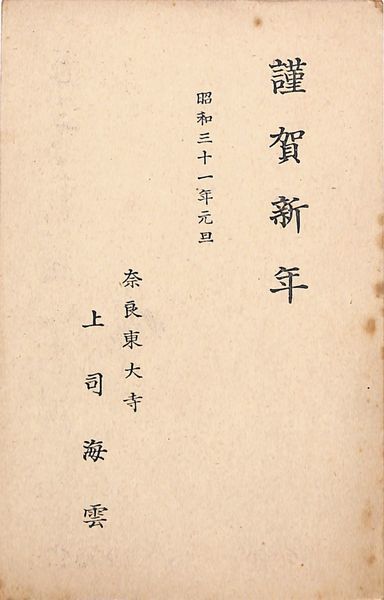 謹賀新年
昭和三十一年元旦
奈良東大寺
上司海雲